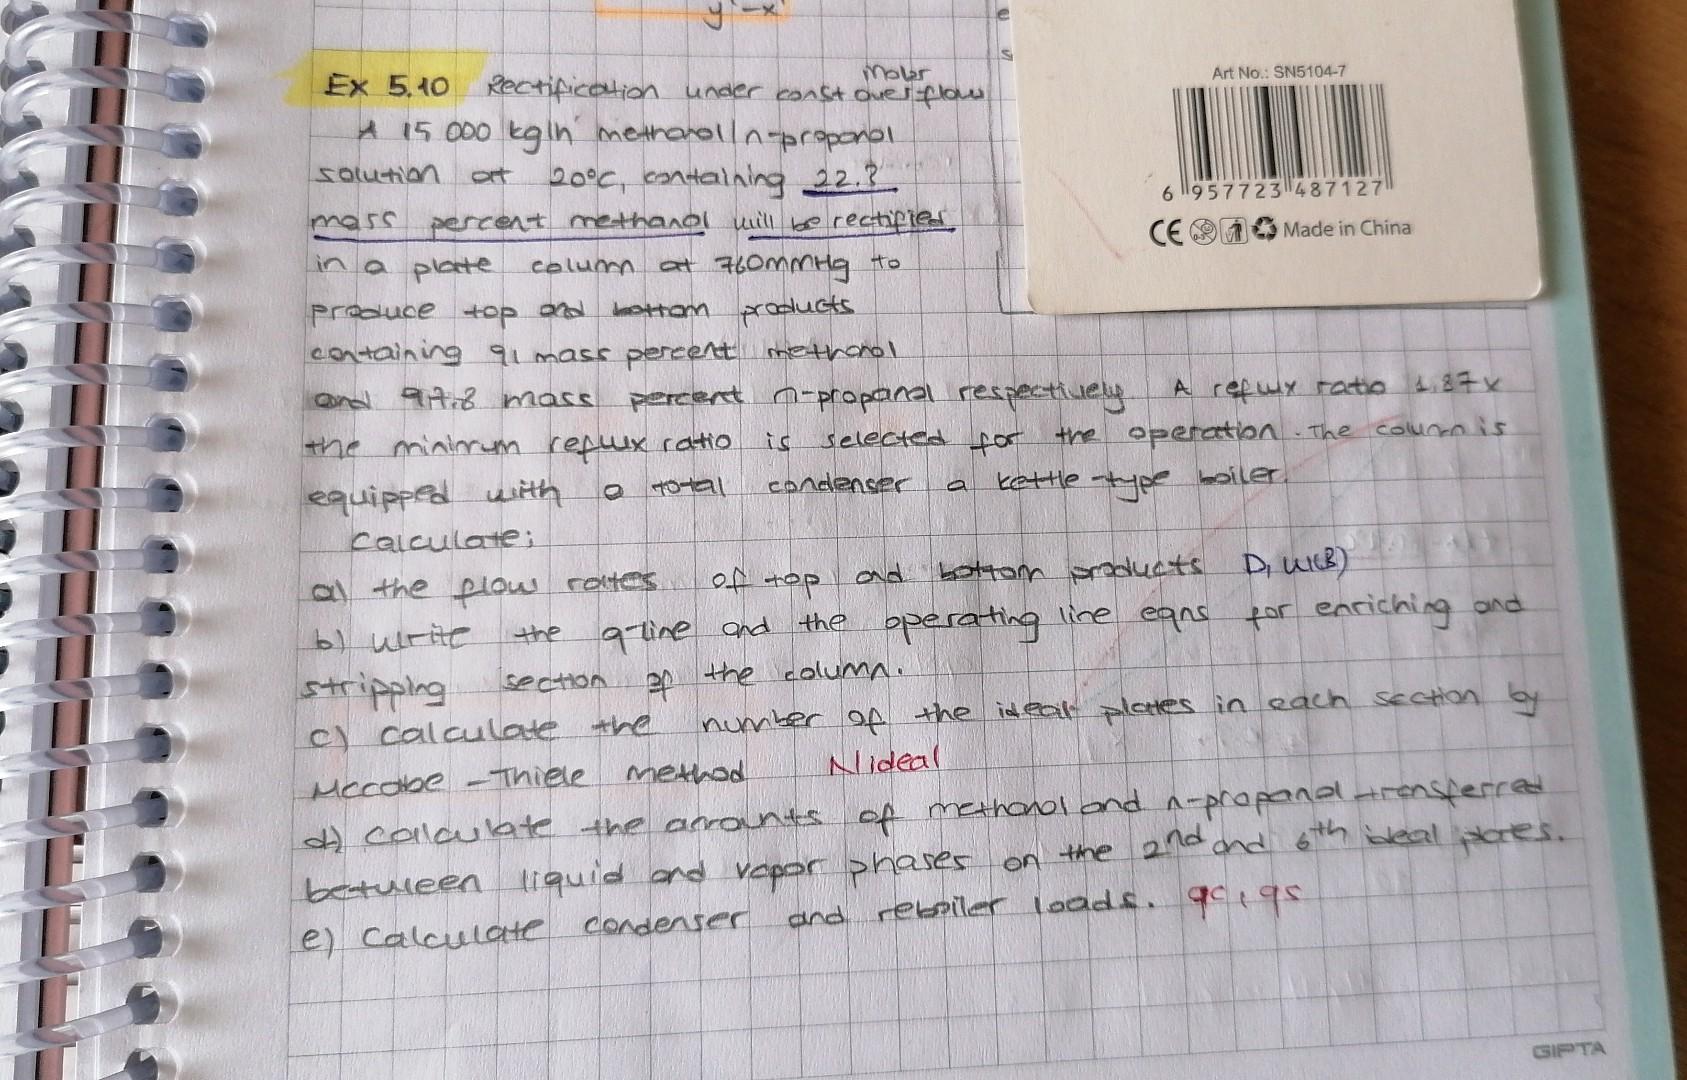 y - x
e
s
Ex 5.10 Rectification under const molar overflow
A 15 000 kg/h methanol/n-propanol
solution at 20°C, containing 22.3
mass percent methanol will be rectified
in a plate column at 760mmHg to
produce top and bottom products
containing 91 mass percent methanol
and 97.8 mass percent n-propanol respectively. A reflux ratio 1.87x
the minimum reflux ratio is selected for the operation. The column is
equipped with a total condenser a kettle-type boiler.
Calculate;
a) the flow rates of top and bottom products D, W(B)
b) Write the q-line and the operating line eqns for enriching and
stripping section of the column.
c) Calculate the number of the ideal plates in each section by
Mccabe-Thiele method Nideal
d) Calculate the amounts of methanol and n-propanol transferred
between liquid and vapor phases on the 2nd and 6th ideal plates.
e) Calculate condenser and reboiler loads. qc, qs
Art No.: SN5104-7
6 957723 487127
CE Made in China
GIPTA